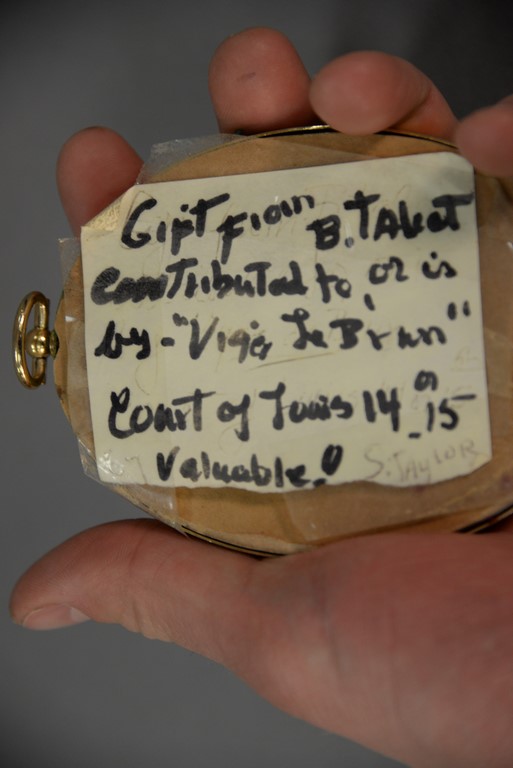 Gift from B. Talbot
contributed to, or is
by - "Vigé Le Brun"
Court of Louis 14 or 15
Valuable!
S. TAYLOR